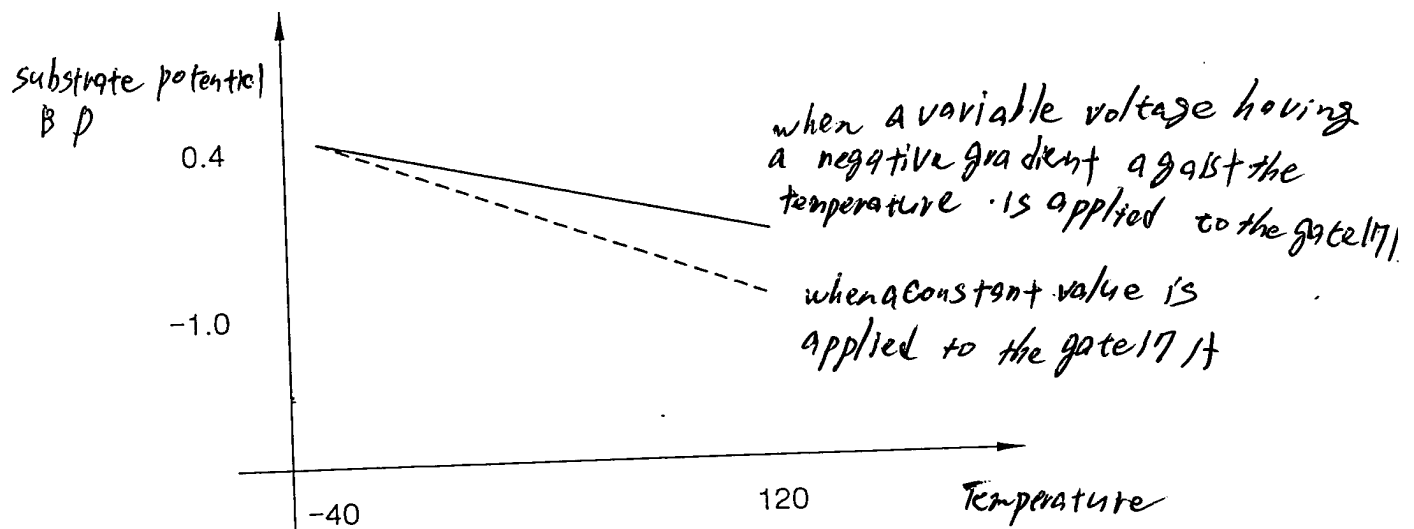 substrate potential
BP
0.4
when a variable voltage having
a negative gradient agaist the
temperature is applied to the gate 171
-1.0
when a constant value is
applied to the gate 171
-40
120
Temperature